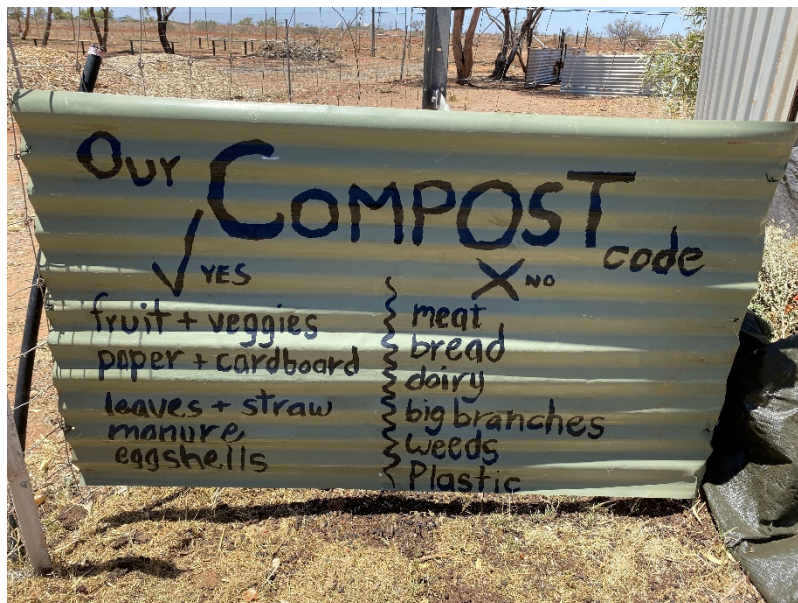 Our COMPOST code
✓ YES
fruit + veggies
paper + cardboard
leaves + straw
manure
eggshells
X NO
meat
bread
dairy
big branches
weeds
Plastic